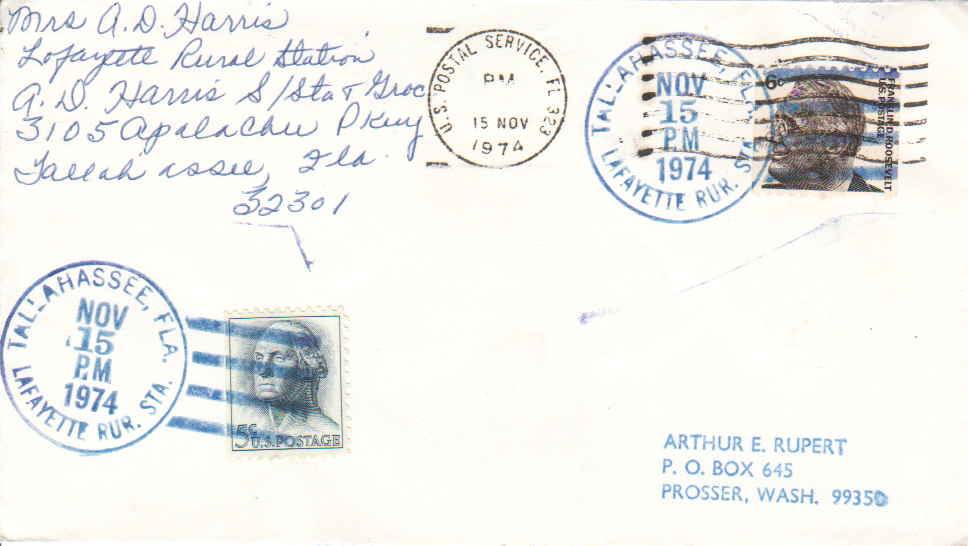 Mrs A. D. Harris
Lafayette Rural Station
A. D. Harris S/Sta & Groc
3105 Apalachee Pkwy
Tallahassee, Fla.
32301
U.S. POSTAL SERVICE, FL 323
PM
15 NOV
1974
TALLAHASSEE, FLA.
NOV
15
P.M
1974
LAFAYETTE RUR. STA.
6c
FRANKLIN D. ROOSEVELT
U.S. POSTAGE
TALLAHASSEE, FLA.
NOV
15
P.M
1974
LAFAYETTE RUR. STA.
5c
U.S. POSTAGE
ARTHUR E. RUPERT
P. O. BOX 645
PROSSER, WASH. 99350